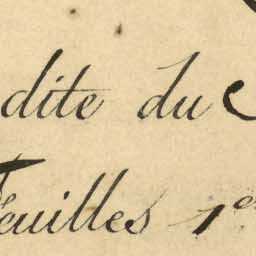 dite du
feuilles 1er